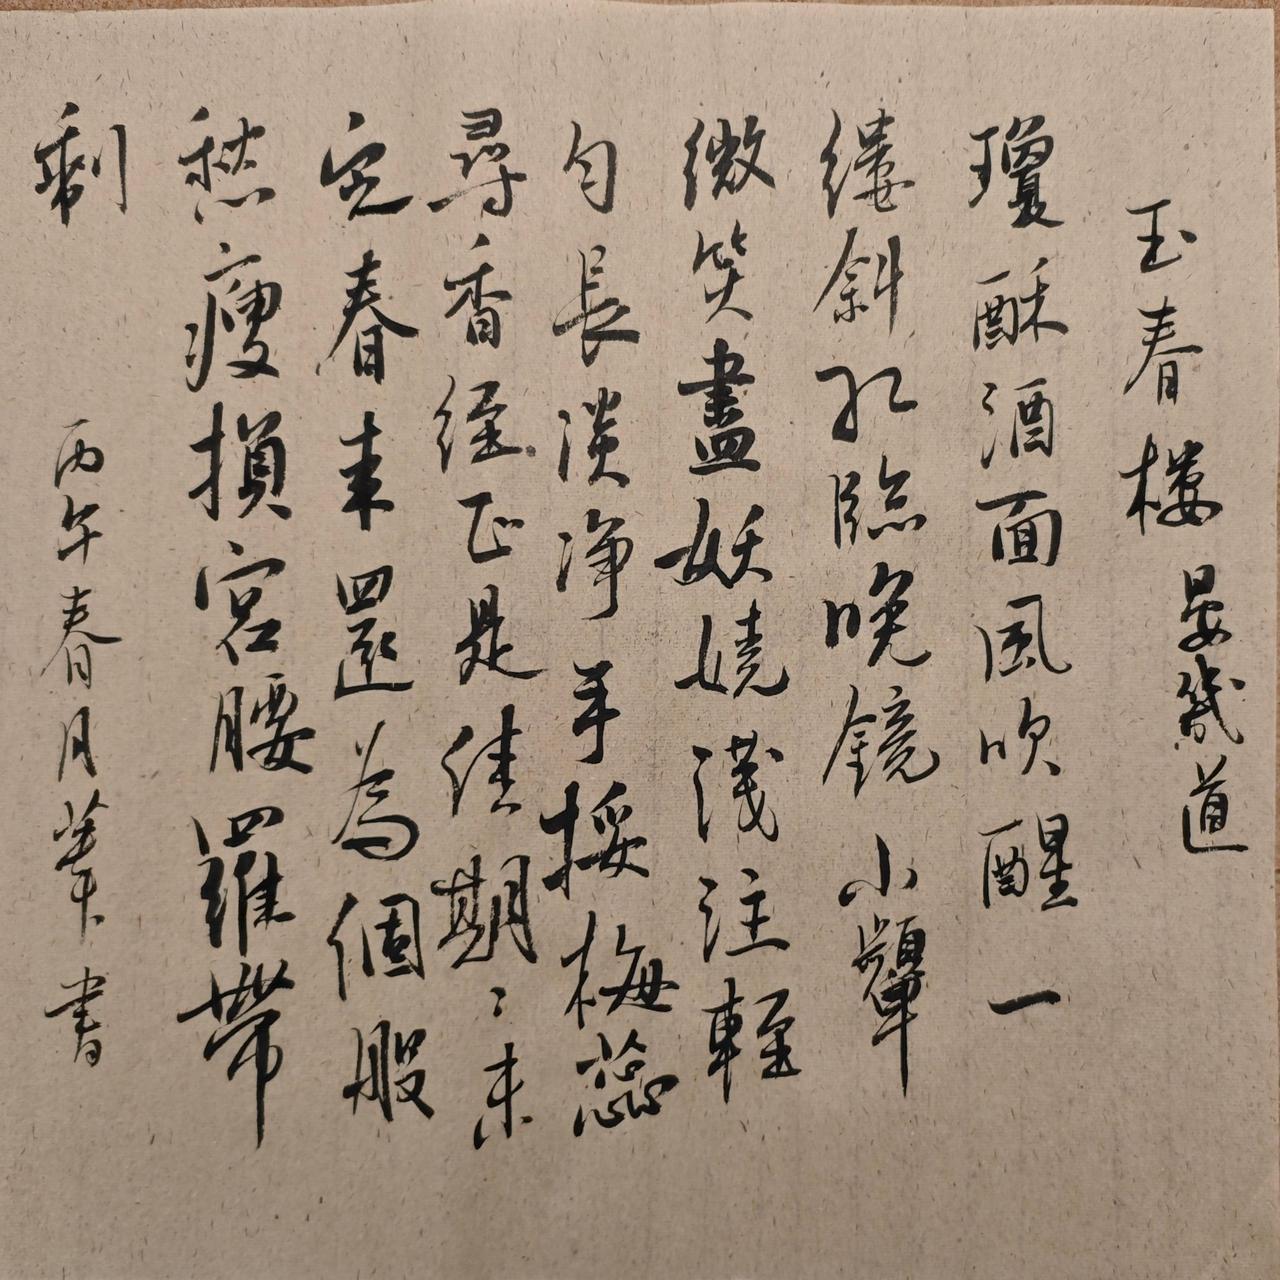 玉春樓 晏幾道
瓊酥酒面風吹醒一
縷斜紅臨晚鏡小顰
微笑盡妖嬈淺注輕
勻長淡淨手挼梅蕊
尋香徑正是佳期〻未
定春來還為個般
愁瘦損宮腰羅帶
剩
丙午春月華書